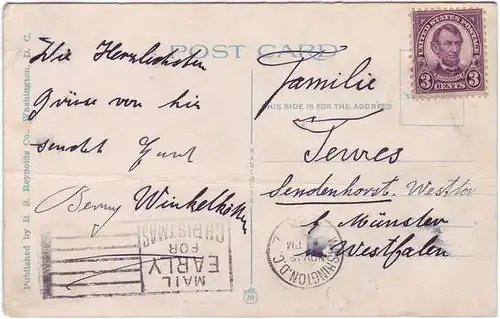 POST CARD
Die Herzlichsten
Grüsse von hier
sendet
Benny Winkelkötter
Familie
THIS SIDE IS FOR THE ADDRESS
Terres
Sendenhorst.
b/ Münster
in Westfalen
UNITED STATES POSTAGE
LINCOLN
3 CENTS 3
WASHINGTON, D.C.
NOV
PM
MAIL
EARLY
FOR
CHRISTMAS
Published by B. S. Reynolds Co., Washington, D. C.